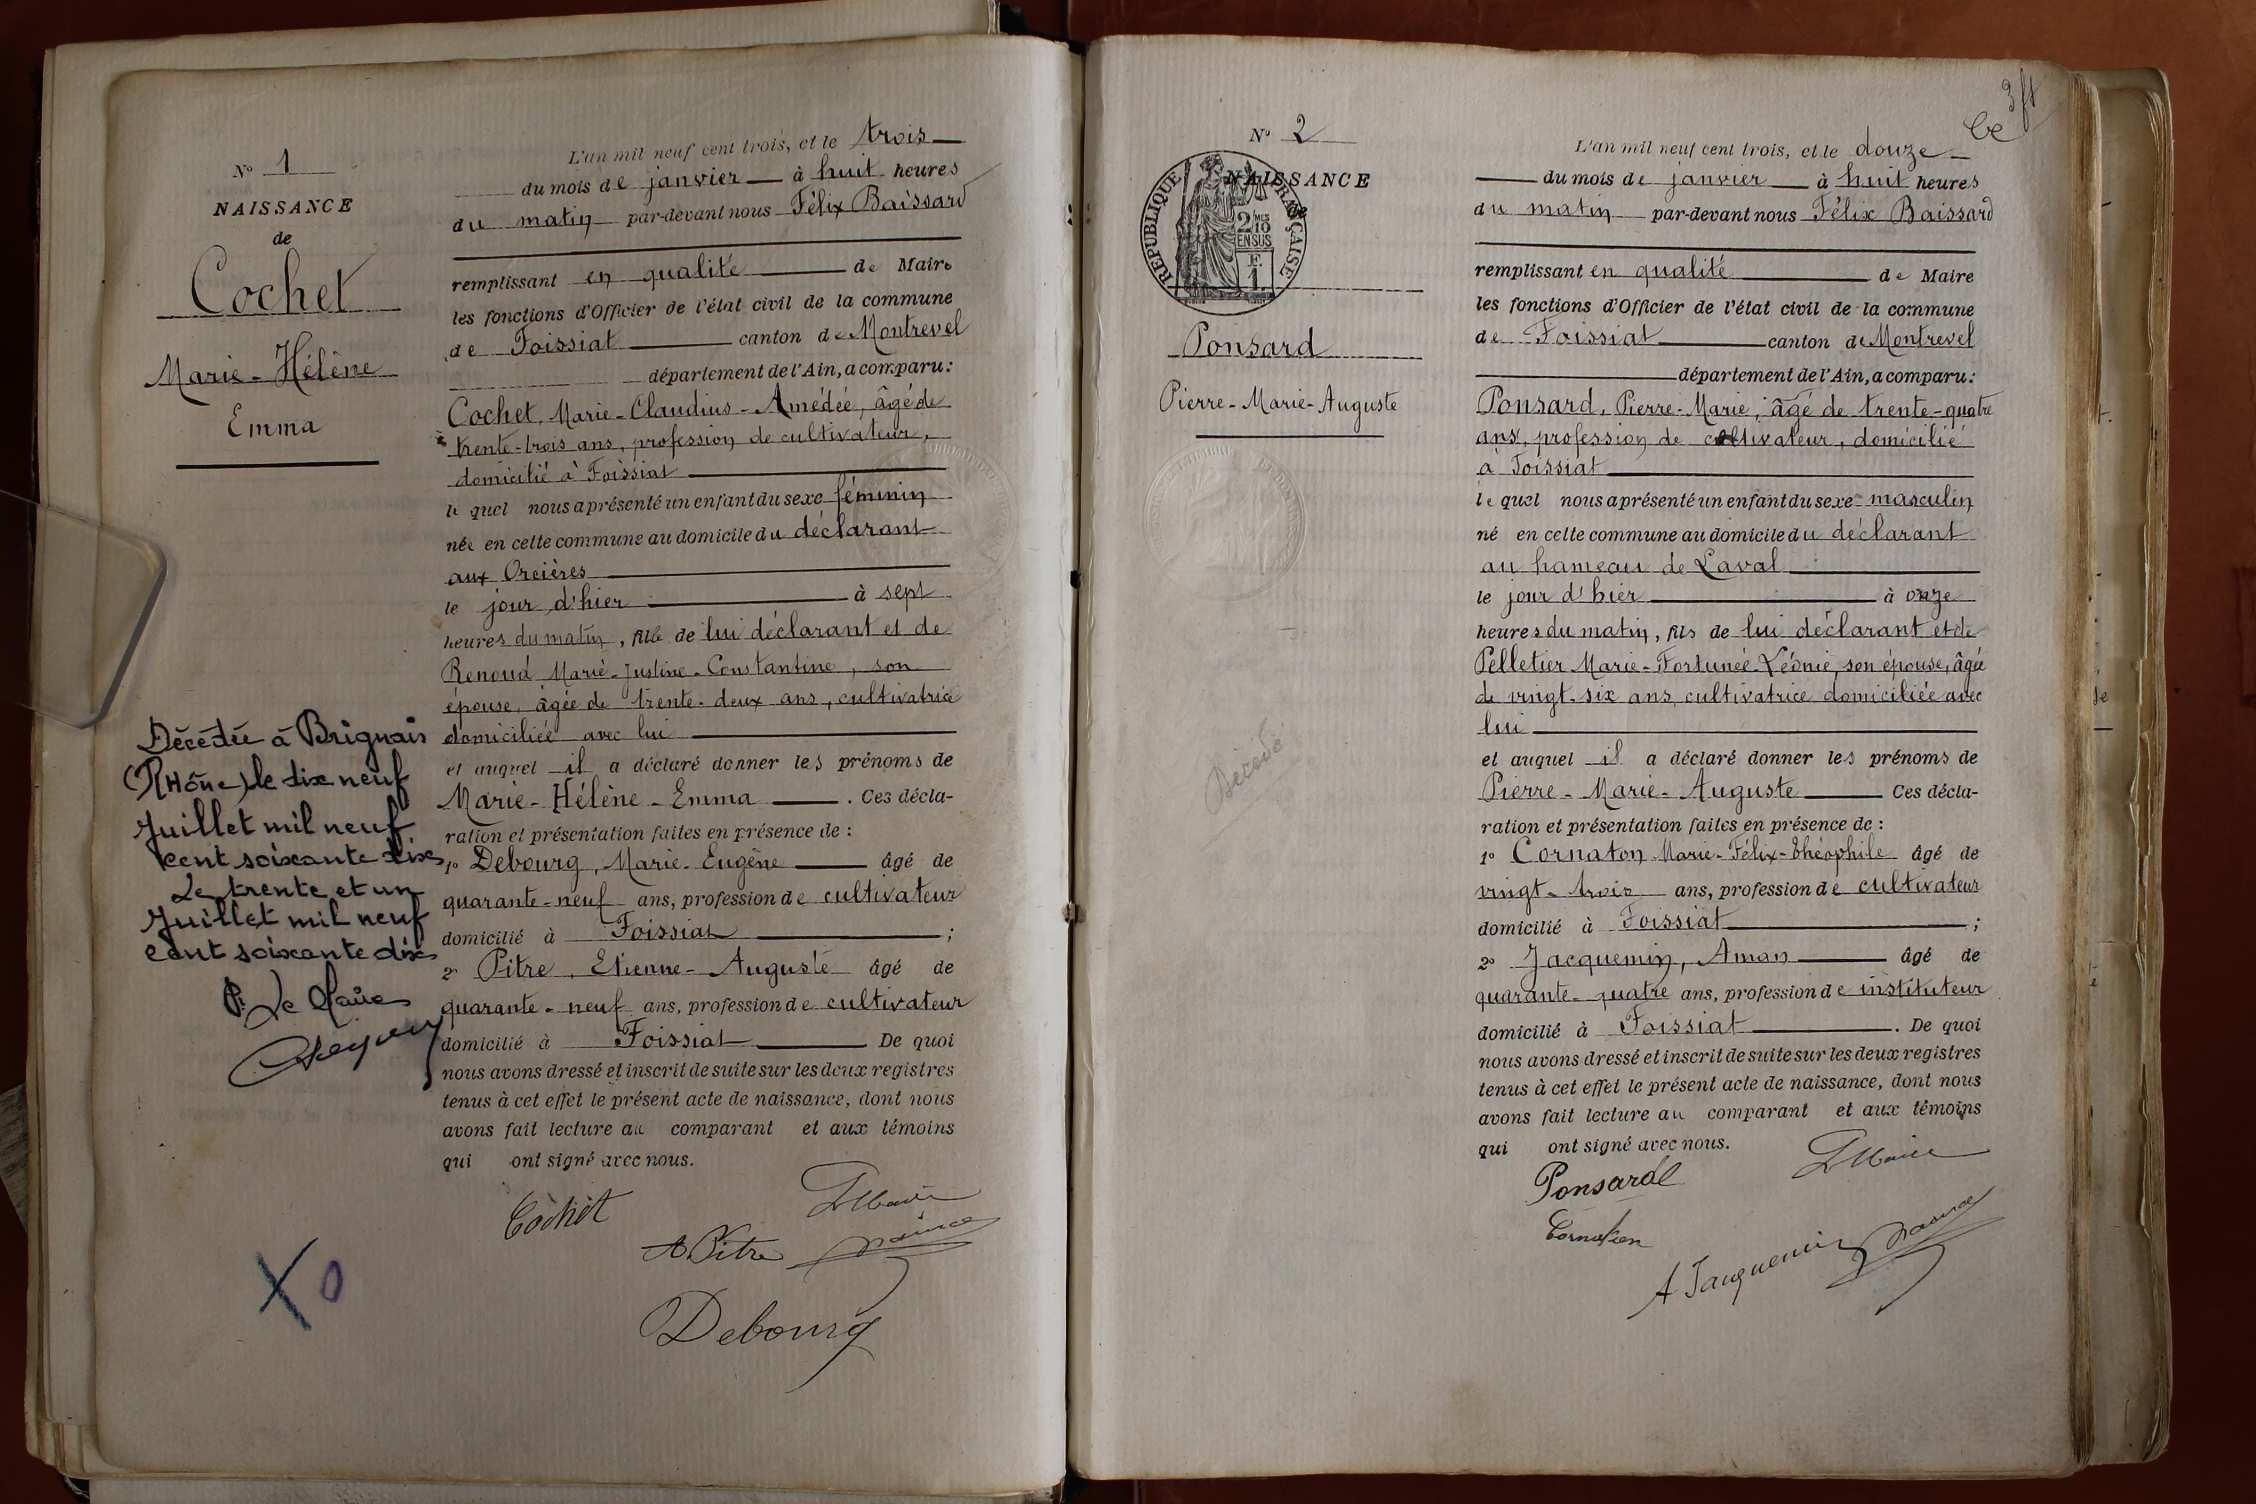 N° 1
NAISSANCE
de
Cochet
Marie-Hélène
Emma
Décédée à Brignais
(Rhône) le dix neuf
Juillet mil neuf
cent soixante dix
Le trente et un
Juillet mil neuf
cent soixante dix
Pr Le Maire
L'an mil neuf cent trois, et le trois
du mois de janvier à huit heures
du matin par-devant nous Félix Baissard
remplissant en qualité de Maire
les fonctions d'Officier de l'état civil de la commune
de Foissiat canton de Montrevel
département de l'Ain, a comparu:
Cochet, Marie-Claudius-Amédée, âgé de
trente-trois ans, profession de cultivateur,
domicilié à Foissiat
le quel nous a présenté un enfant du sexe féminin
née en cette commune au domicile du déclarant
aux Orcières
le jour d'hier à sept
heures du matin, fille de lui déclarant et de
Renoud Marie-Justine-Constantine, son
épouse, âgée de trente-deux ans, cultivatrice
domiciliée avec lui
et auquel il a déclaré donner les prénoms de
Marie-Hélène-Emma. Ces décla-
ration et présentation faites en présence de :
1° Debourg, Marie-Eugène âgé de
quarante-neuf ans, profession de cultivateur
domicilié à Foissiat ;
2° Pitre, Etienne-Auguste âgé de
quarante-neuf ans, profession de cultivateur
domicilié à Foissiat De quoi
nous avons dressé et inscrit de suite sur les deux registres
tenus à cet effet le présent acte de naissance, dont nous
avons fait lecture au comparant et aux témoins
qui ont signé avec nous.
Cochet
A Pitre
Debourg
X 0
3 ft
N° 2
NAISSANCE
de
RÉPUBLIQUE FRANÇAISE
2/10 MES
EN SUS
F.
1
Ponsard
Pierre-Marie-Auguste
Décédé
L'an mil neuf cent trois, et le douze
du mois de janvier à huit heures
du matin par-devant nous Félix Baissard
remplissant en qualité de Maire
les fonctions d'Officier de l'état civil de la commune
de Foissiat canton de Montrevel
département de l'Ain, a comparu:
Ponsard, Pierre-Marie, âgé de trente-quatre
ans, profession de cultivateur, domicilié
à Foissiat
le quel nous a présenté un enfant du sexe masculin
né en cette commune au domicile du déclarant
au hameau de Laval
le jour d'hier à onze
heures du matin, fils de lui déclarant et de
Pelletier Marie-Fortunée-Léonie, son épouse, âgée
de vingt-six ans, cultivatrice domiciliée avec
lui
et auquel il a déclaré donner les prénoms de
Pierre-Marie-Auguste Ces décla-
ration et présentation faites en présence de :
1° Cornaton Marie-Félix-Théophile âgé de
vingt-trois ans, profession de cultivateur
domicilié à Foissiat ;
2° Jacquemin, Aman âgé de
quarante-quatre ans, profession de instituteur
domicilié à Foissiat. De quoi
nous avons dressé et inscrit de suite sur les deux registres
tenus à cet effet le présent acte de naissance, dont nous
avons fait lecture au comparant et aux témoins
qui ont signé avec nous.
Ponsard
Cornaton
A Jacquemin